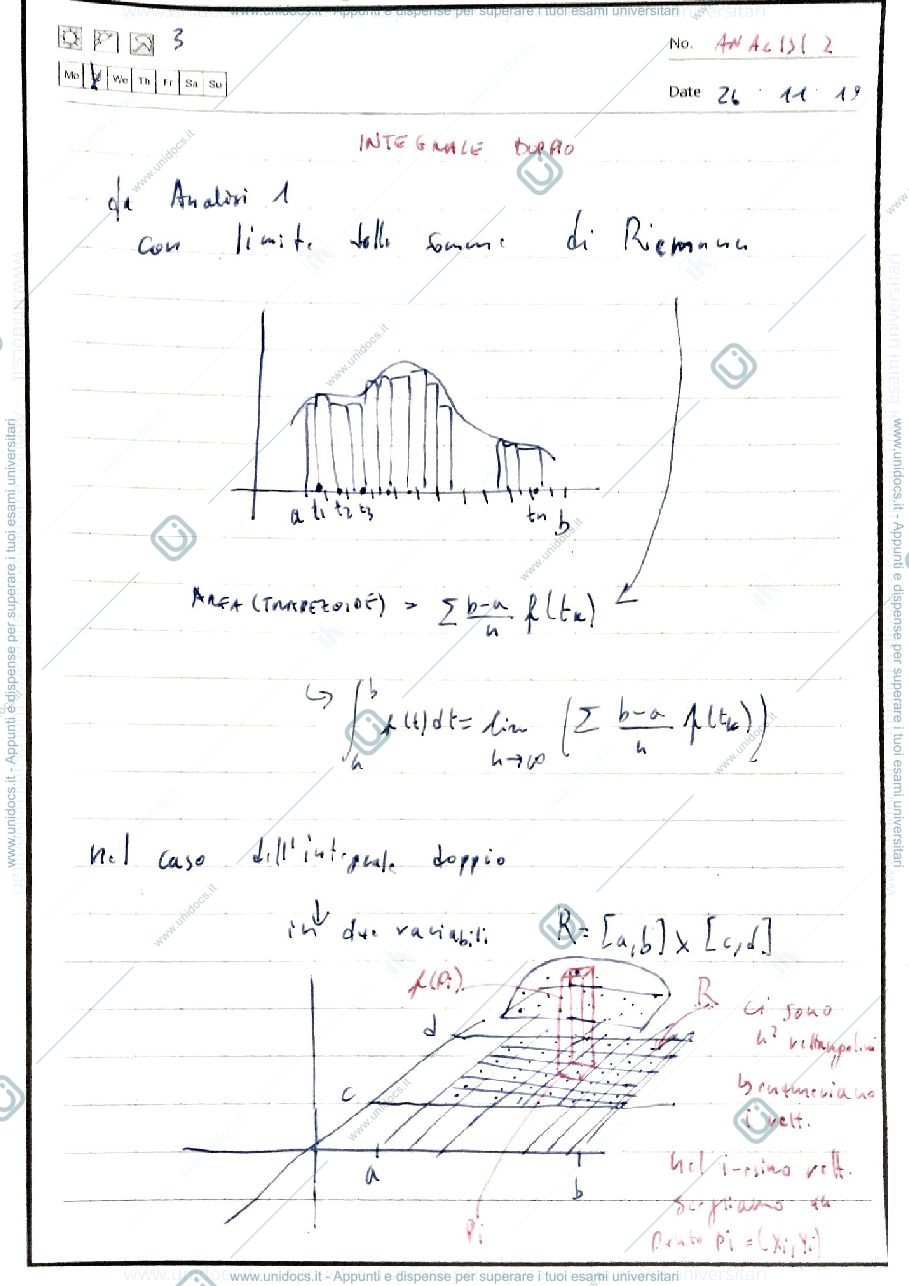 www.unidocs.it - Appunti e dispense per superare i tuoi esami universitari
3
No. ANALISI 2
Mo We Th Fr Sa Su
Date 26 11 19
INTEGRALE DOPPIO
da Analisi 1
con limite delle somme di Riemann
a t1 t2 t3 tn b
AREA (TRAPEZOIDE) = Σ b-a/n f(tk)
↪ ∫ b a f(t)dt = lim n→∞ (Σ b-a/n f(tk))
nel caso dell'integrale doppio
in due variabili R = [a,b] x [c,d]
f(Pi) R ci sono
d n² rettangolini
numeriamo
c i rett.
nel i-esimo rett.
a b scegliamo un
Pi punto Pi = (xi,yi)
www.unidocs.it - Appunti e dispense per superare i tuoi esami universitari